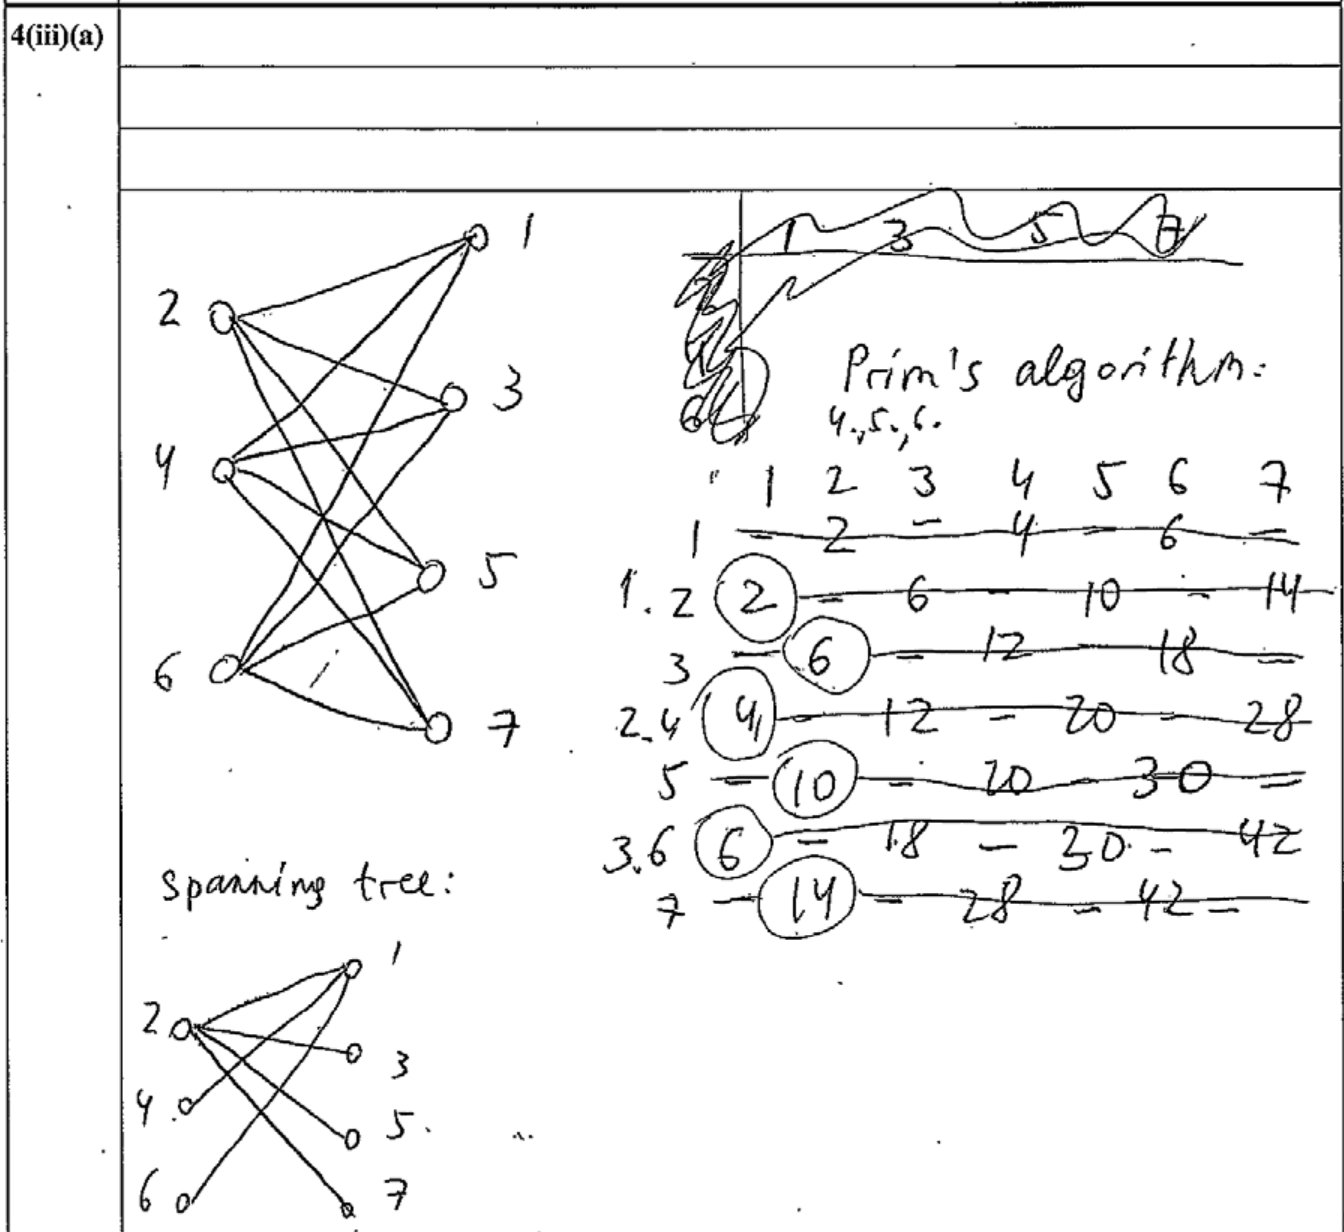 4(iii)(a)
1
2
3
4
5
6
7
1 3 5 7
6
Prim's algorithm:
4.,5.,6.
1 2 3 4 5 6 7
1 - 2 - 4 - 6 -
1. 2 2 - 6 - 10 - 14
3 - 6 - 12 18 -
2. 4 4 - 12 - 20 - 28
5 - 10 - 20 - 30 -
3. 6 6 - 18 - 30 - 42
7 - 14 - 28 - 42 -
spanning tree:
1
2
3
4
5
6
7